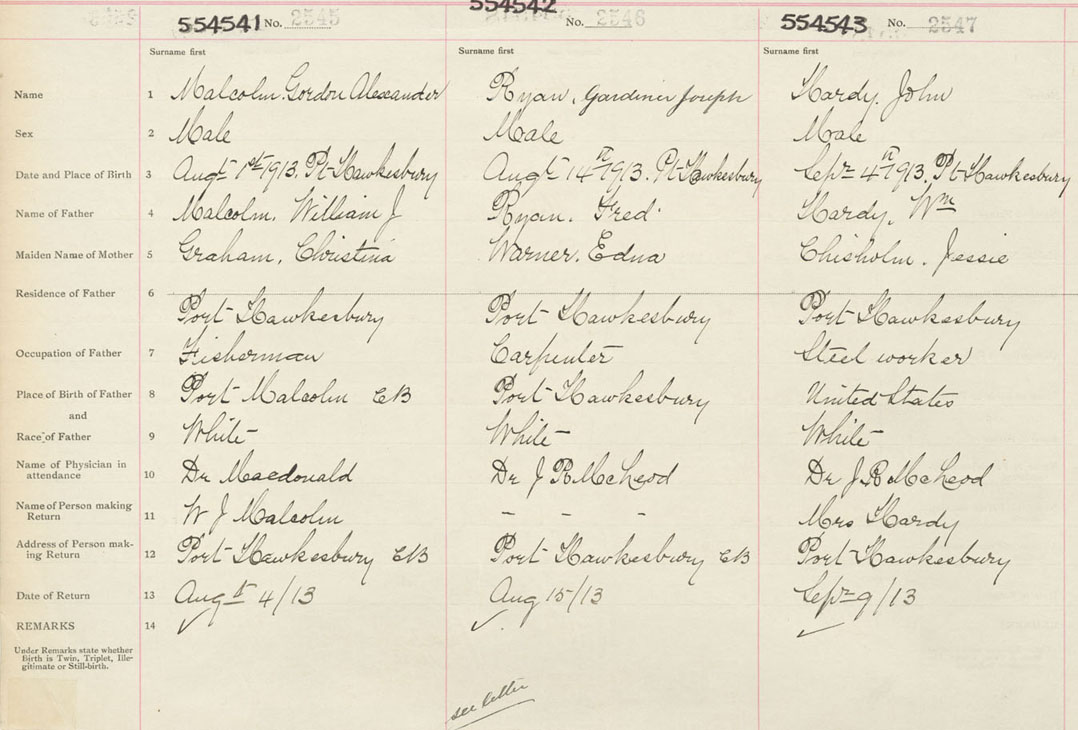 554541 No. 2545 554542 No. 2546 554543 No. 2547
Surname first Surname first Surname first
Name 1 Malcolm. Gordon Alexander Ryan, Gardiner Joseph Hardy, John
Sex 2 Male Male Male
Date and Place of Birth 3 Augt 1st 1913. Pt Hawkesbury Augt 14th 1913. Pt Hawkesbury Sepr 4th 1913. Pt Hawkesbury
Name of Father 4 Malcolm, William J Ryan. Fred Hardy, Wm
Maiden Name of Mother 5 Graham, Christina Warner. Edna Chisholm. Jessie
Residence of Father 6
Port Hawkesbury Port Hawkesbury Port Hawkesbury
Occupation of Father 7 Fisherman Carpenter Steel worker
Place of Birth of Father 8 Port Malcolm CB Port Hawkesbury United States
and
Race of Father 9 White White White
Name of Physician in
attendance 10 Dr Macdonald Dr J R McLeod Dr J R McLeod
Name of Person making
Return 11 W J Malcolm - - - Mrs Hardy
Address of Person mak-
ing Return 12 Port Hawkesbury CB Port Hawkesbury CB Port Hawkesbury
Date of Return 13 Augt 4/13 Aug 15/13 Sepr 9/13
REMARKS 14
Under Remarks state whether
Birth is Twin, Triplet, Ille-
gitimate or Still-birth.
see letter